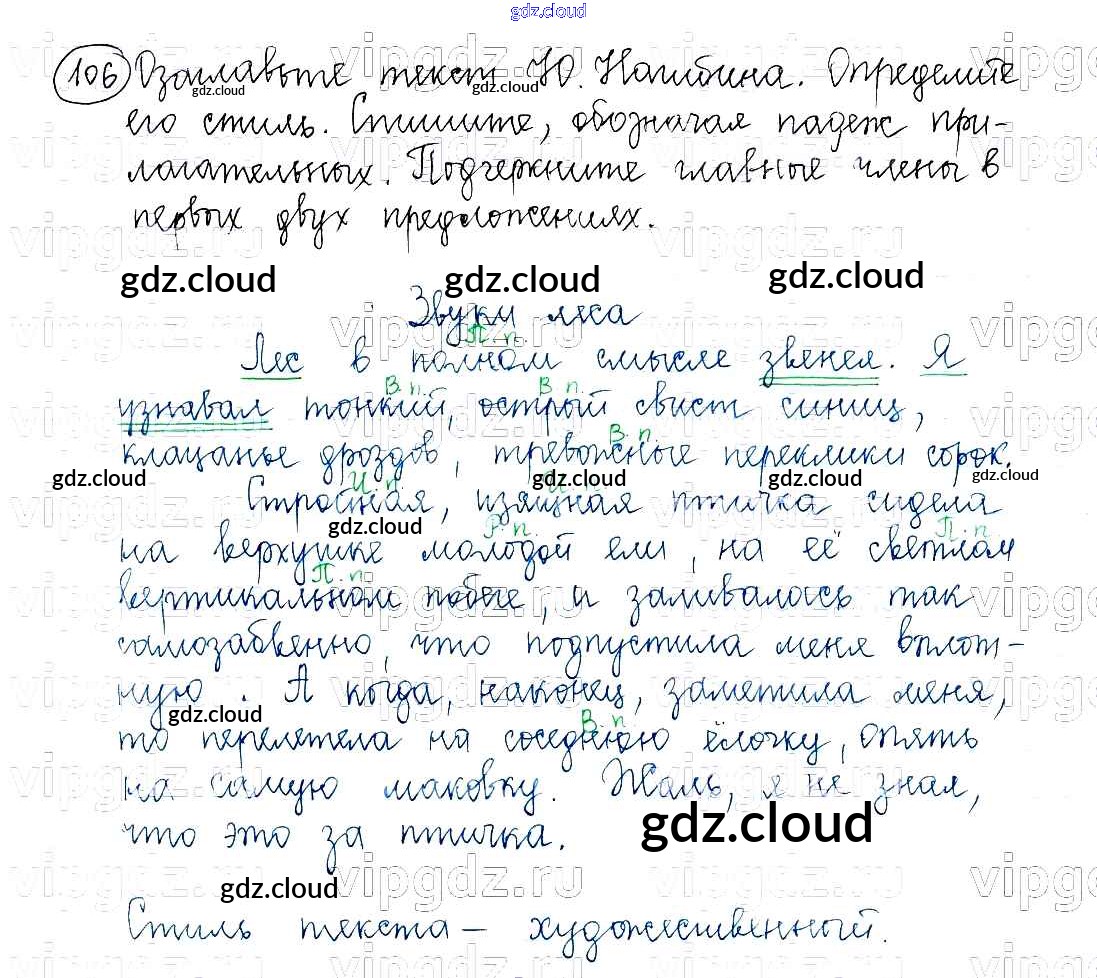 gdz.cloud
106 Озаглавьте текст Ю. Нагибина. Определите
его стиль. Спишите, обозначая падеж при-
лагательных. Подчеркните главные члены в
первых двух предложениях.
gdz.cloud gdz.cloud gdz.cloud
Звуки леса
П. п.
Лес в полном смысле звенел. Я
В. п. В. п.
узнавал тонкий, острый свист синиц,
В. п.
клацанье дроздов, тревожные переклики сорок.
И. п. И. п.
Стройная, изящная птичка сидела
Р. п. П. п.
на верхушке молодой ели, на её светлом
П. п.
вертикальном побеге, и заливалась так
самозабвенно, что подпустила меня вплот-
ную. А когда, наконец, заметила меня,
В. п.
то перелетела на соседнюю ёлочку, опять
на самую маковку. Жаль, я не знал,
что это за птичка.
gdz.cloud
gdz.cloud
Стиль текста – художественный.